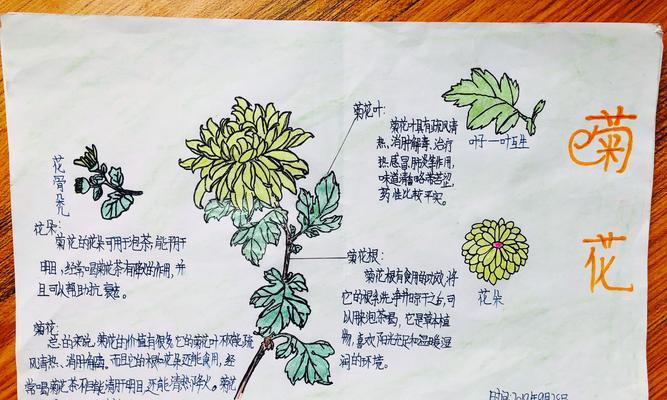 菊花
菊花叶:
菊花叶具有疏风清
热、消肿解毒、治疗
热感冒、肺燥等作用,
味道清香略带苦涩,
药性比较平实。
叶子一叶互生
花骨朵儿
花朵:
菊花的花朵可用于泡茶,能用于
明目,经常喝菊花茶有降火的作用,并
且可以帮助抗衰老。
菊花根:
菊花根有食用的功效,将
它的根系洗净并晾干之后,可
以用来泡茶喝,它是草本植
物,喜欢阳光充足和温暖湿
润的环境。
花朵
菊花:
总的来说,菊花的价值有很多,它的菊花叶不仅能疏
风清热、消肿解毒。而且它的根和花朵还能食用,经
常喝菊花茶不但能清肝明目,还能清热降火。菊花